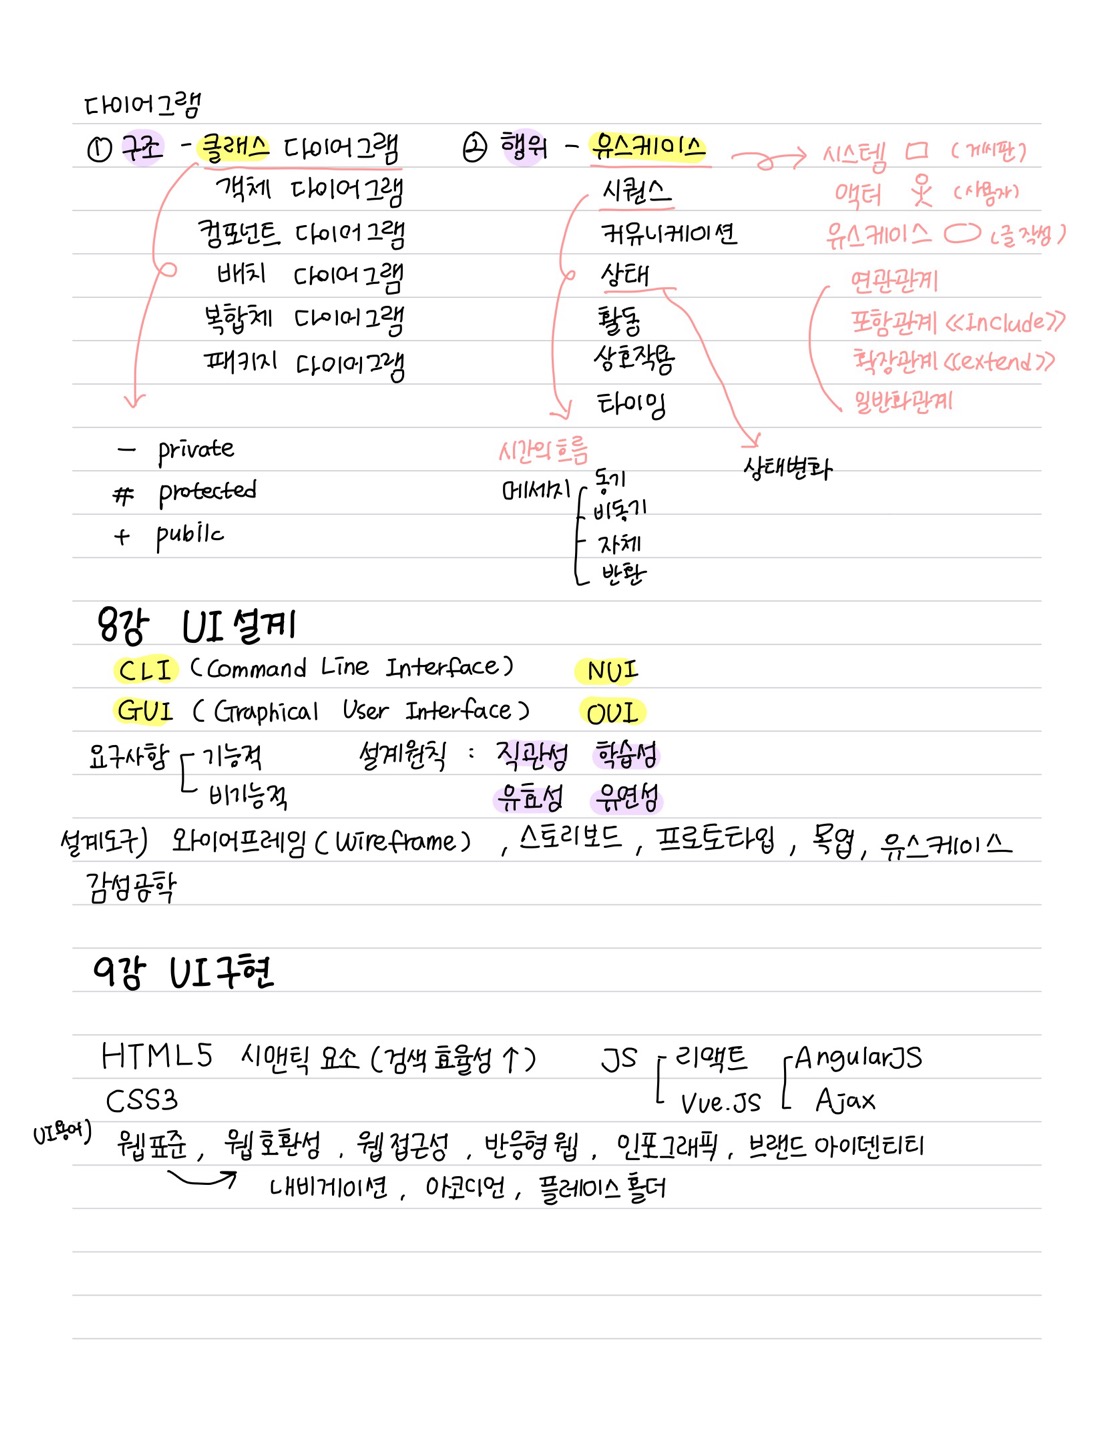 다이어그램
① 구조 - 클래스 다이어그램
객체 다이어그램
컴포넌트 다이어그램
배치 다이어그램
복합체 다이어그램
패키지 다이어그램
- private
# protected
+ public
② 행위 - 유스케이스
시퀀스
커뮤니케이션
상태
활동
상호작용
타이밍
시스템 □ (게시판)
액터 (사용자)
유스케이스 (글작성)
연관관계
포함관계 <<Include>>
확장관계 <<extend>>
일반화관계
시간의 흐름
메세지
동기
비동기
자체
반환
상태변화
8강 UI 설계
CLI (Command Line Interface) NUI
GUI (Graphical User Interface) OUI
요구사항 기능적 설계원칙 : 직관성 학습성
비기능적 유효성 유연성
설계도구) 와이어프레임 (Wireframe) , 스토리보드 , 프로토타입 , 목업, 유스케이스
감성공학
9강 UI 구현
HTML5 시맨틱 요소 (검색 효율성 ↑) JS 리액트 AngularJS
CSS3 Vue.JS Ajax
UI용어) 웹표준 , 웹 호환성 , 웹 접근성 , 반응형 웹 , 인포그래픽 , 브랜드 아이덴티티
내비게이션 , 아코디언 , 플레이스 홀더